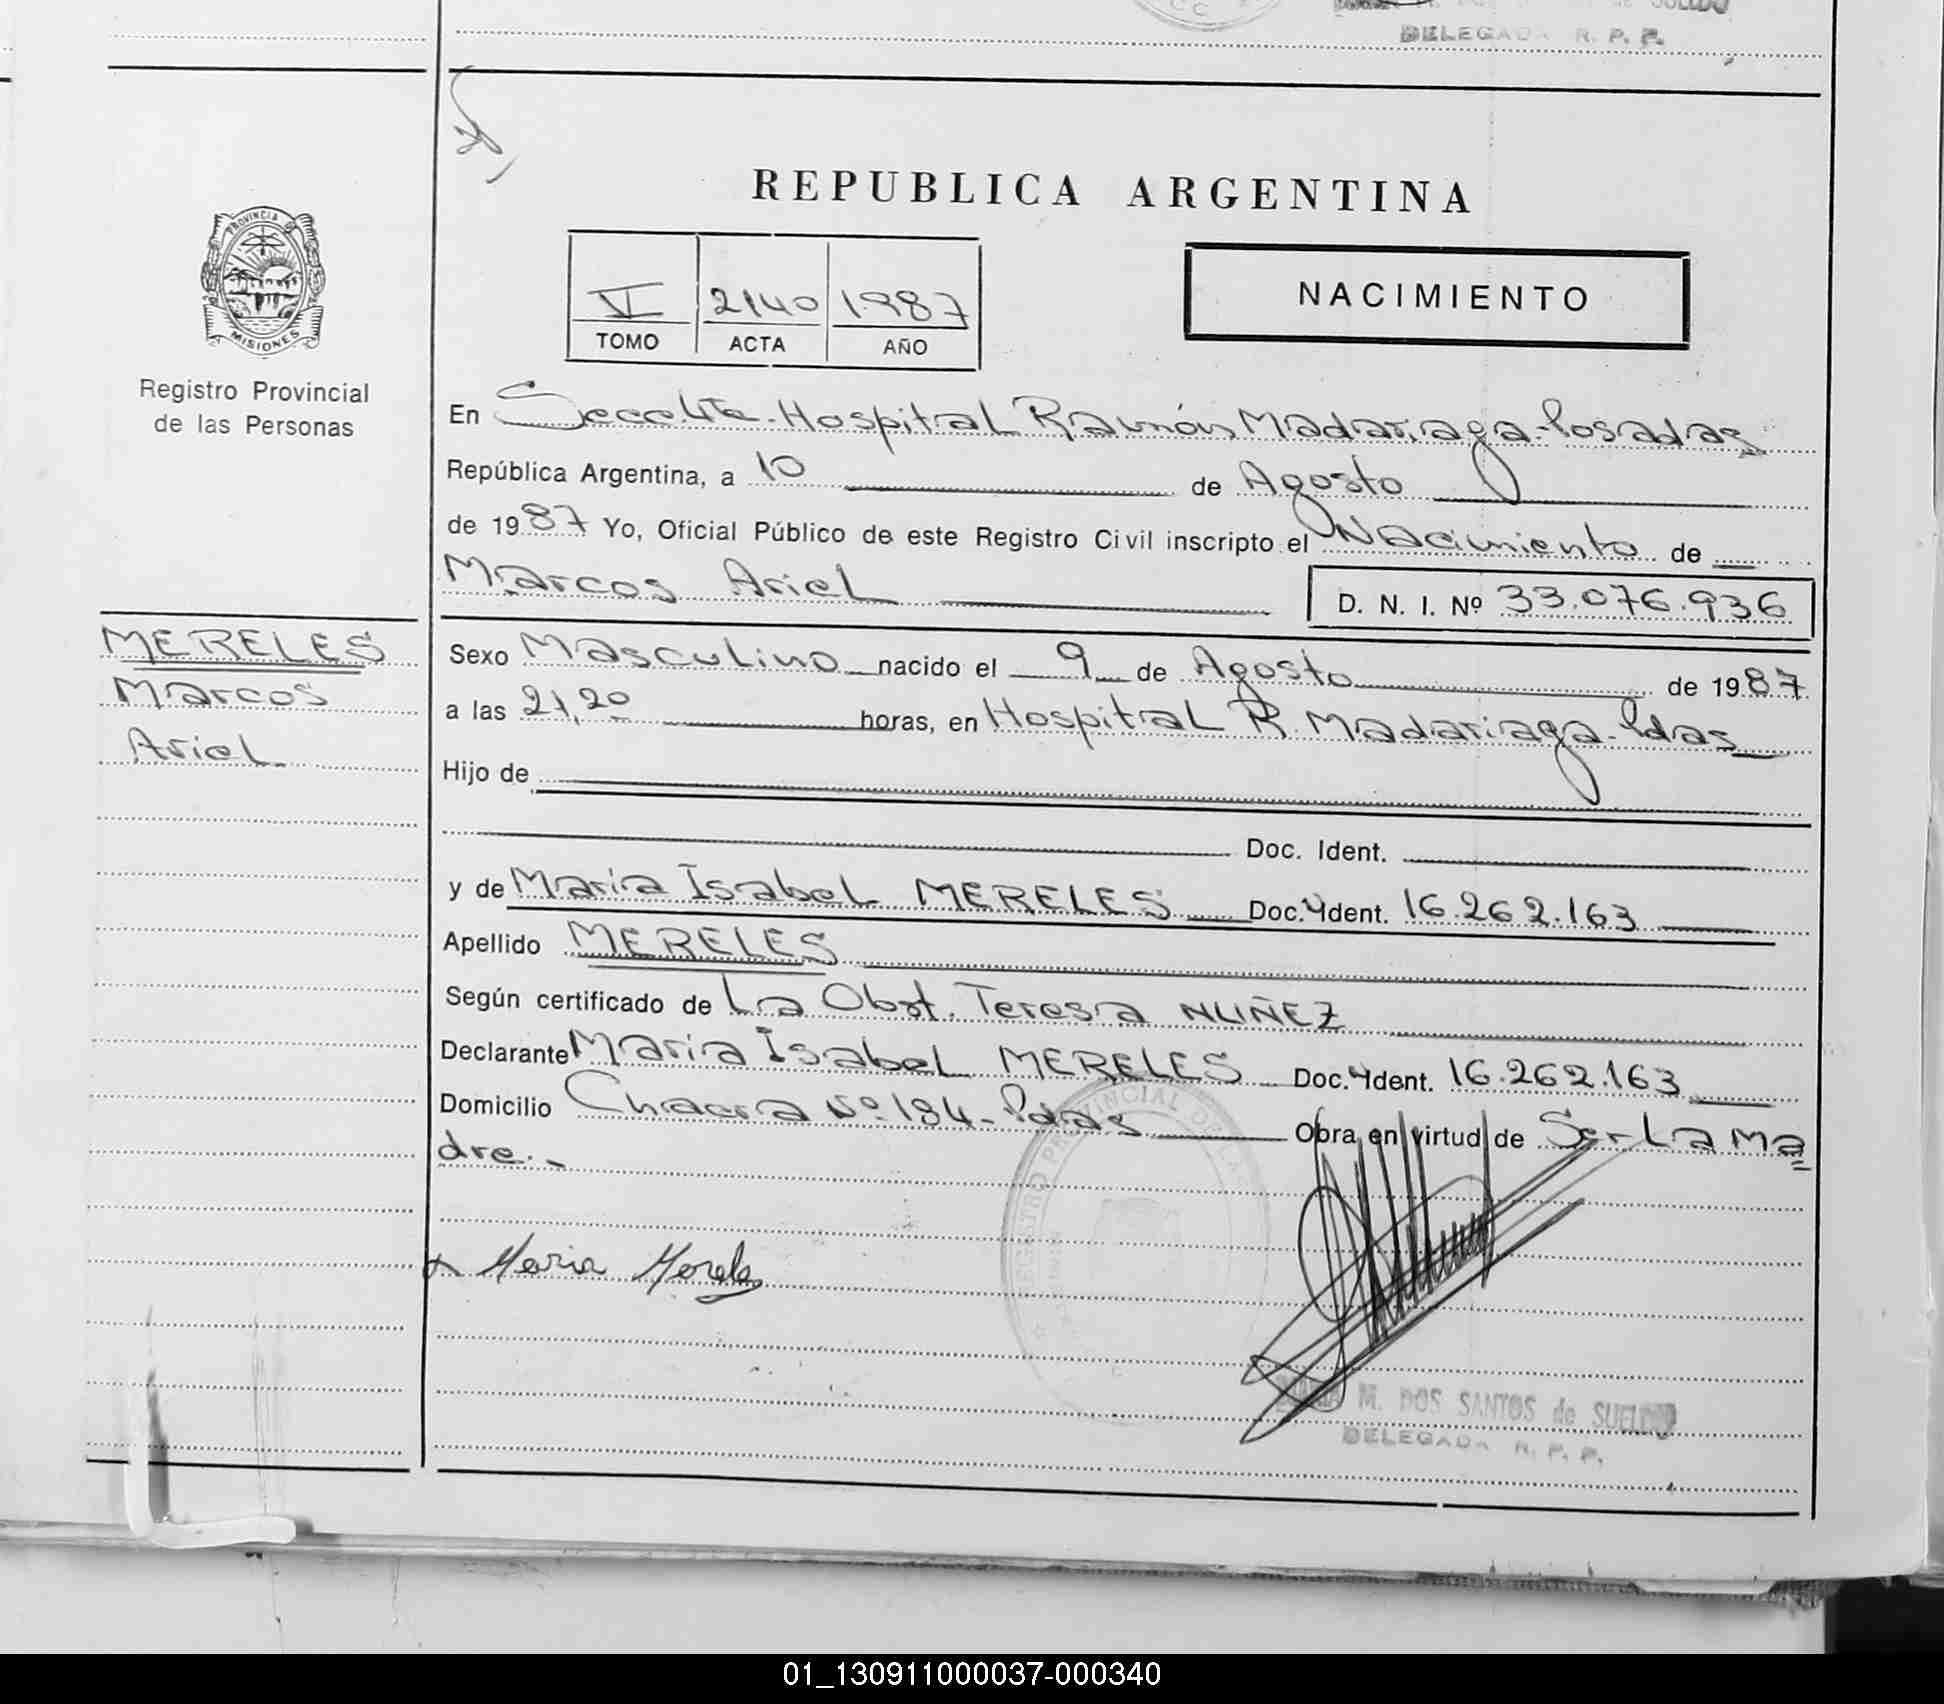 DELEGADA R. P. P.
REPUBLICA ARGENTINA
PROVINCIA DE
MISIONES
Registro Provincial
de las Personas
VI 2140 1987
TOMO ACTA AÑO
NACIMIENTO
En Secc. Hospital Ramón Madariaga-Posadas
República Argentina, a 10 de Agosto
de 1987 Yo, Oficial Público de este Registro Civil inscripto el Nacimiento de
Marcos Ariel D. N. I. Nº 33.076.936
MERELES
Marcos
Ariel
Sexo Masculino nacido el 9 de Agosto de 1987
a las 21,20 horas, en Hospital R. Madariaga-Pdas
Hijo de
Doc. Ident.
y de María Isabel MERELES Doc. Ident. 16.262.163
Apellido MERELES
Según certificado de La Obst. Teresa NUÑEZ
Declarante María Isabel MERELES Doc. Ident. 16.262.163
Domicilio Chacra Nº 184-Pdas Obra en virtud de Ser La ma
dre.-
REGISTRO PROVINCIAL DE LAS
Maria Mereles
M. DOS SANTOS de SUELDO
DELEGADA R. P. P.
01_130911000037-000340